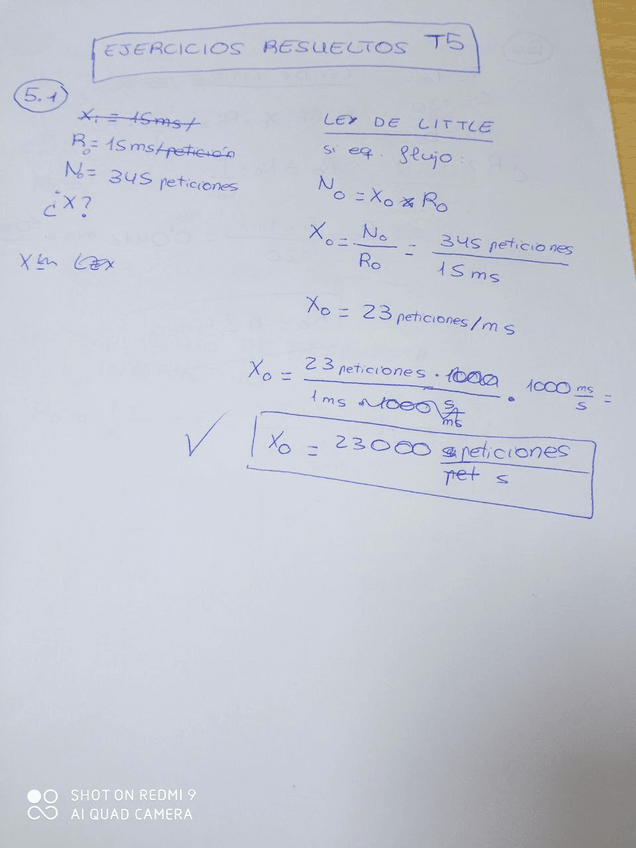 EJERCICIOS RESUELTOS T5
5.1
X₁ = 15ms/
R₀ = 15ms/petición
N₀ = 345 peticiones
¿X?
LEY DE LITTLE
si eq. flujo:
N₀ = X₀ * R₀
X₀ = N₀ / R₀ = 345 peticiones / 15 ms
X₀ = 23 peticiones/ms
X₀ = 23 peticiones · 1000 / 1 ms · 1000 s/ms · 1000 ms/s =
✓ X₀ = 23000 peticiones / pet s
SHOT ON REDMI 9
AI QUAD CAMERA